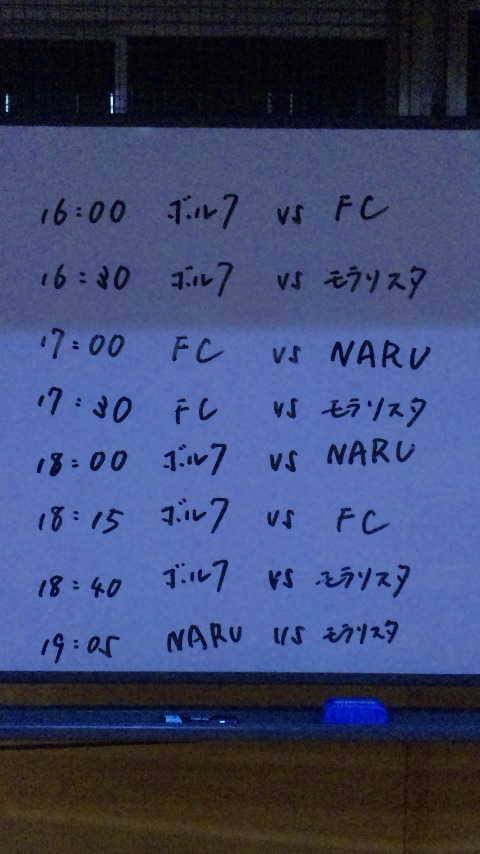 16:00 ボルフ vs FC
16:30 ボルフ vs モラリスタ
17:00 FC vs NARU
17:30 FC vs モラリスタ
18:00 ボルフ vs NARU
18:15 ボルフ vs FC
18:40 ボルフ vs モラリスタ
19:05 NARU vs モラリスタ